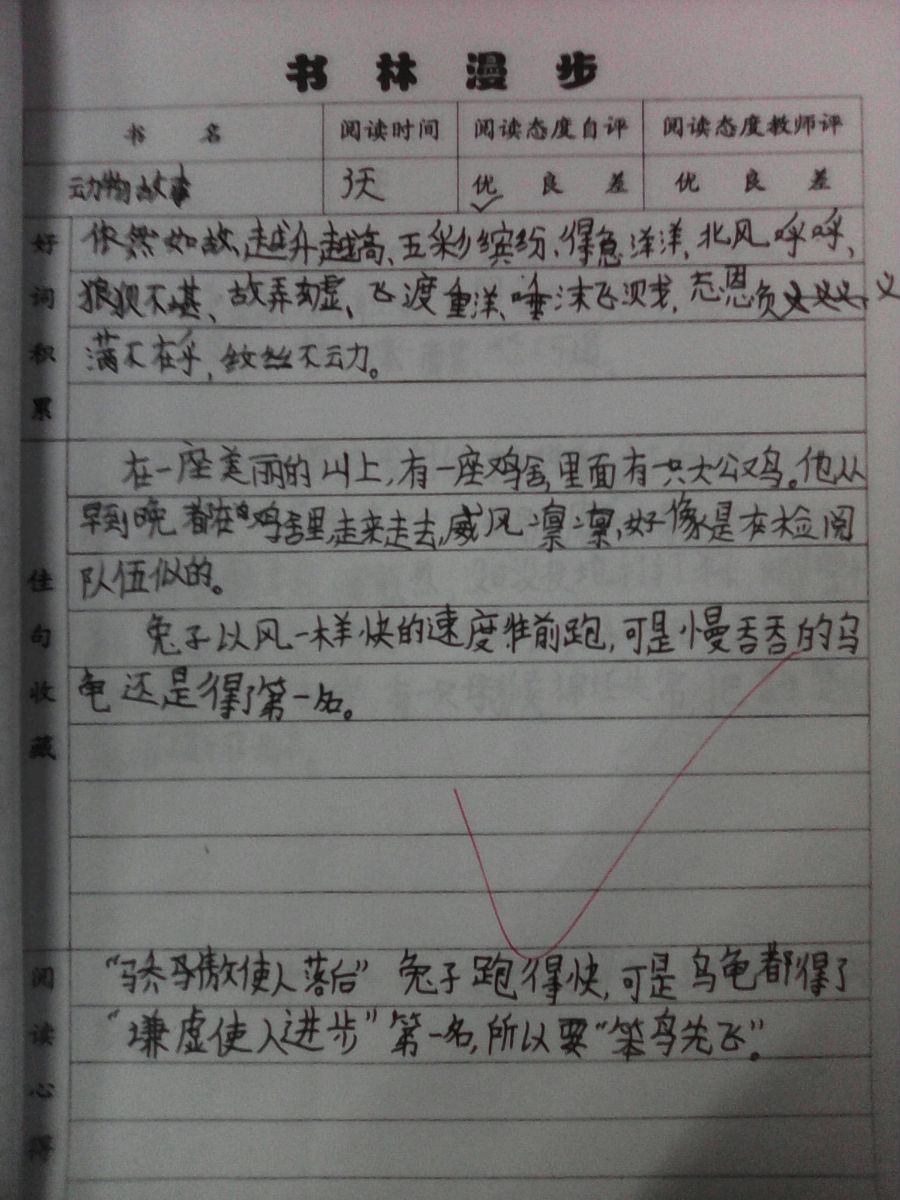 书林漫步
书名 阅读时间 阅读态度自评 阅读态度教师评
动物故事 3天 优 良 差 优 良 差
好词积累
依然如故、越升越高、五彩缤纷、得意洋洋、北风呼呼、
狼狈不堪、故弄玄虚、飞渡重洋、唾沫飞溅、忘恩负义
满不在乎，纹丝不动。
佳句收藏
在一座美丽的山上，有一座鸡舍，里面有一只大公鸡。他从
早到晚都在鸡舍里，走来走去，威风凛凛，好像是在检阅
队伍似的。
兔子以风一样快的速度往前跑，可是慢吞吞的乌
龟还是得了第一名。
阅读心得
“骄傲使人落后” 兔子跑得快，可是乌龟都得了
“谦虚使人进步” 第一名，所以要“笨鸟先飞”。